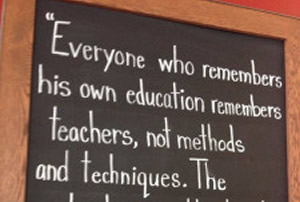 "Everyone who remembers
his own education remembers
teachers, not methods
and techniques. The